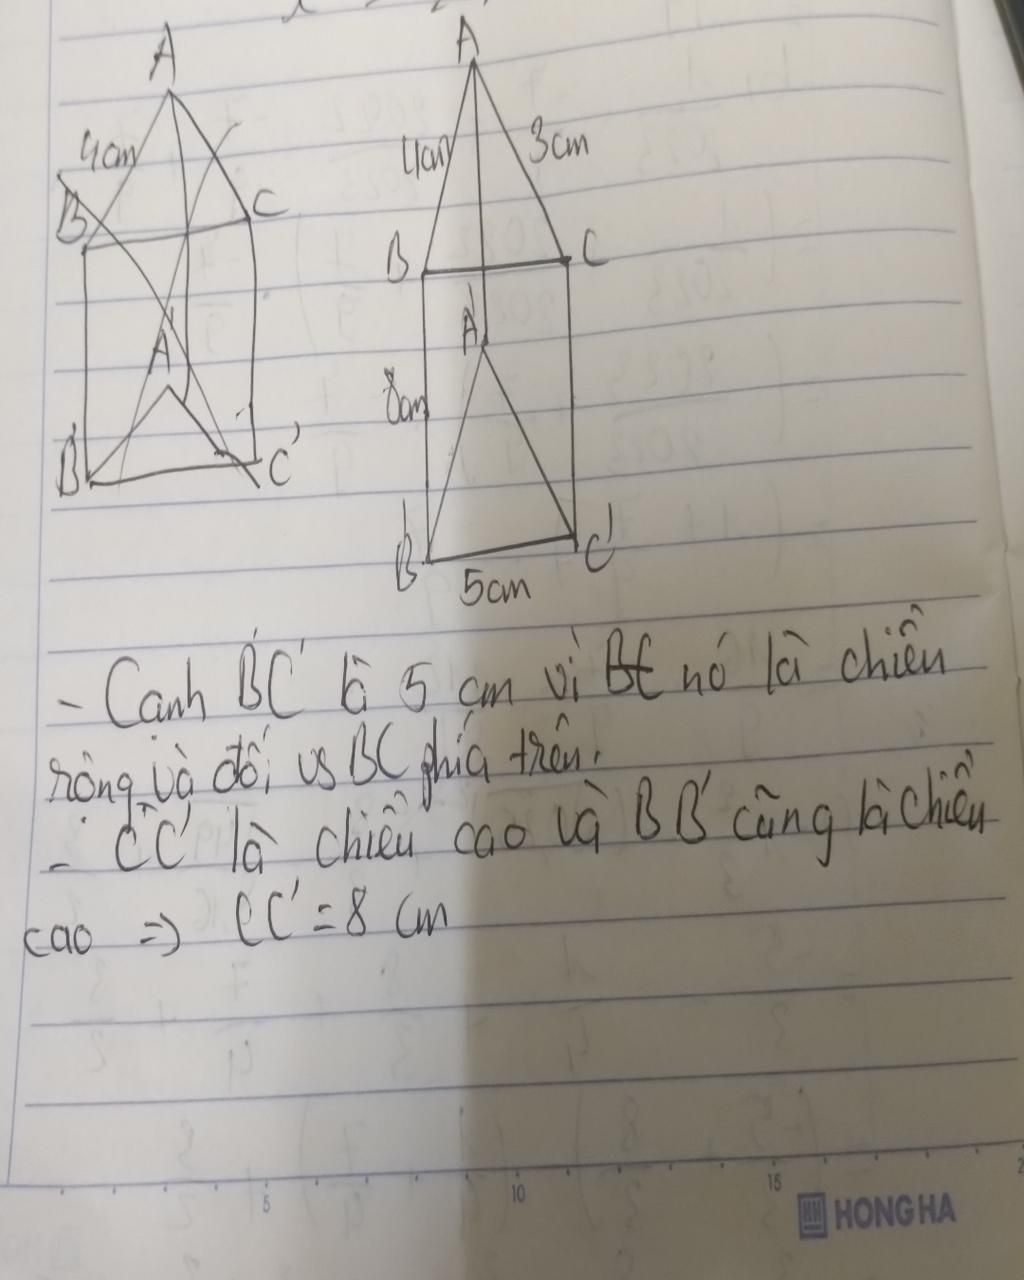 A
A
4cm
4cm
3cm
B
C
B
C
A'
A
8cm
B'
C'
B'
C'
5cm
- Cạnh B'C' là 5 cm vì BC nó là chiều
rộng và đối vs BC phía trên.
- CC' là chiều cao và BB' cũng là chiều
cao => CC' = 8 cm
5
10
15
HONG HA